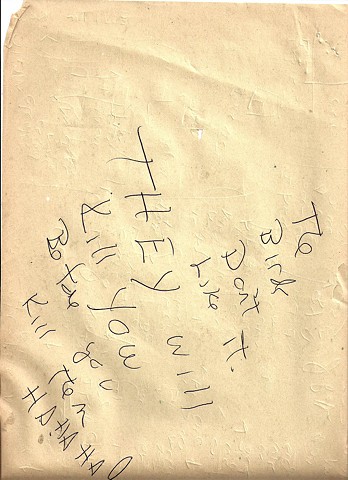 The
Birds
Dont
Like It.
THEY will
Kill YOU
Before you
Kill them
HA HA HA HA